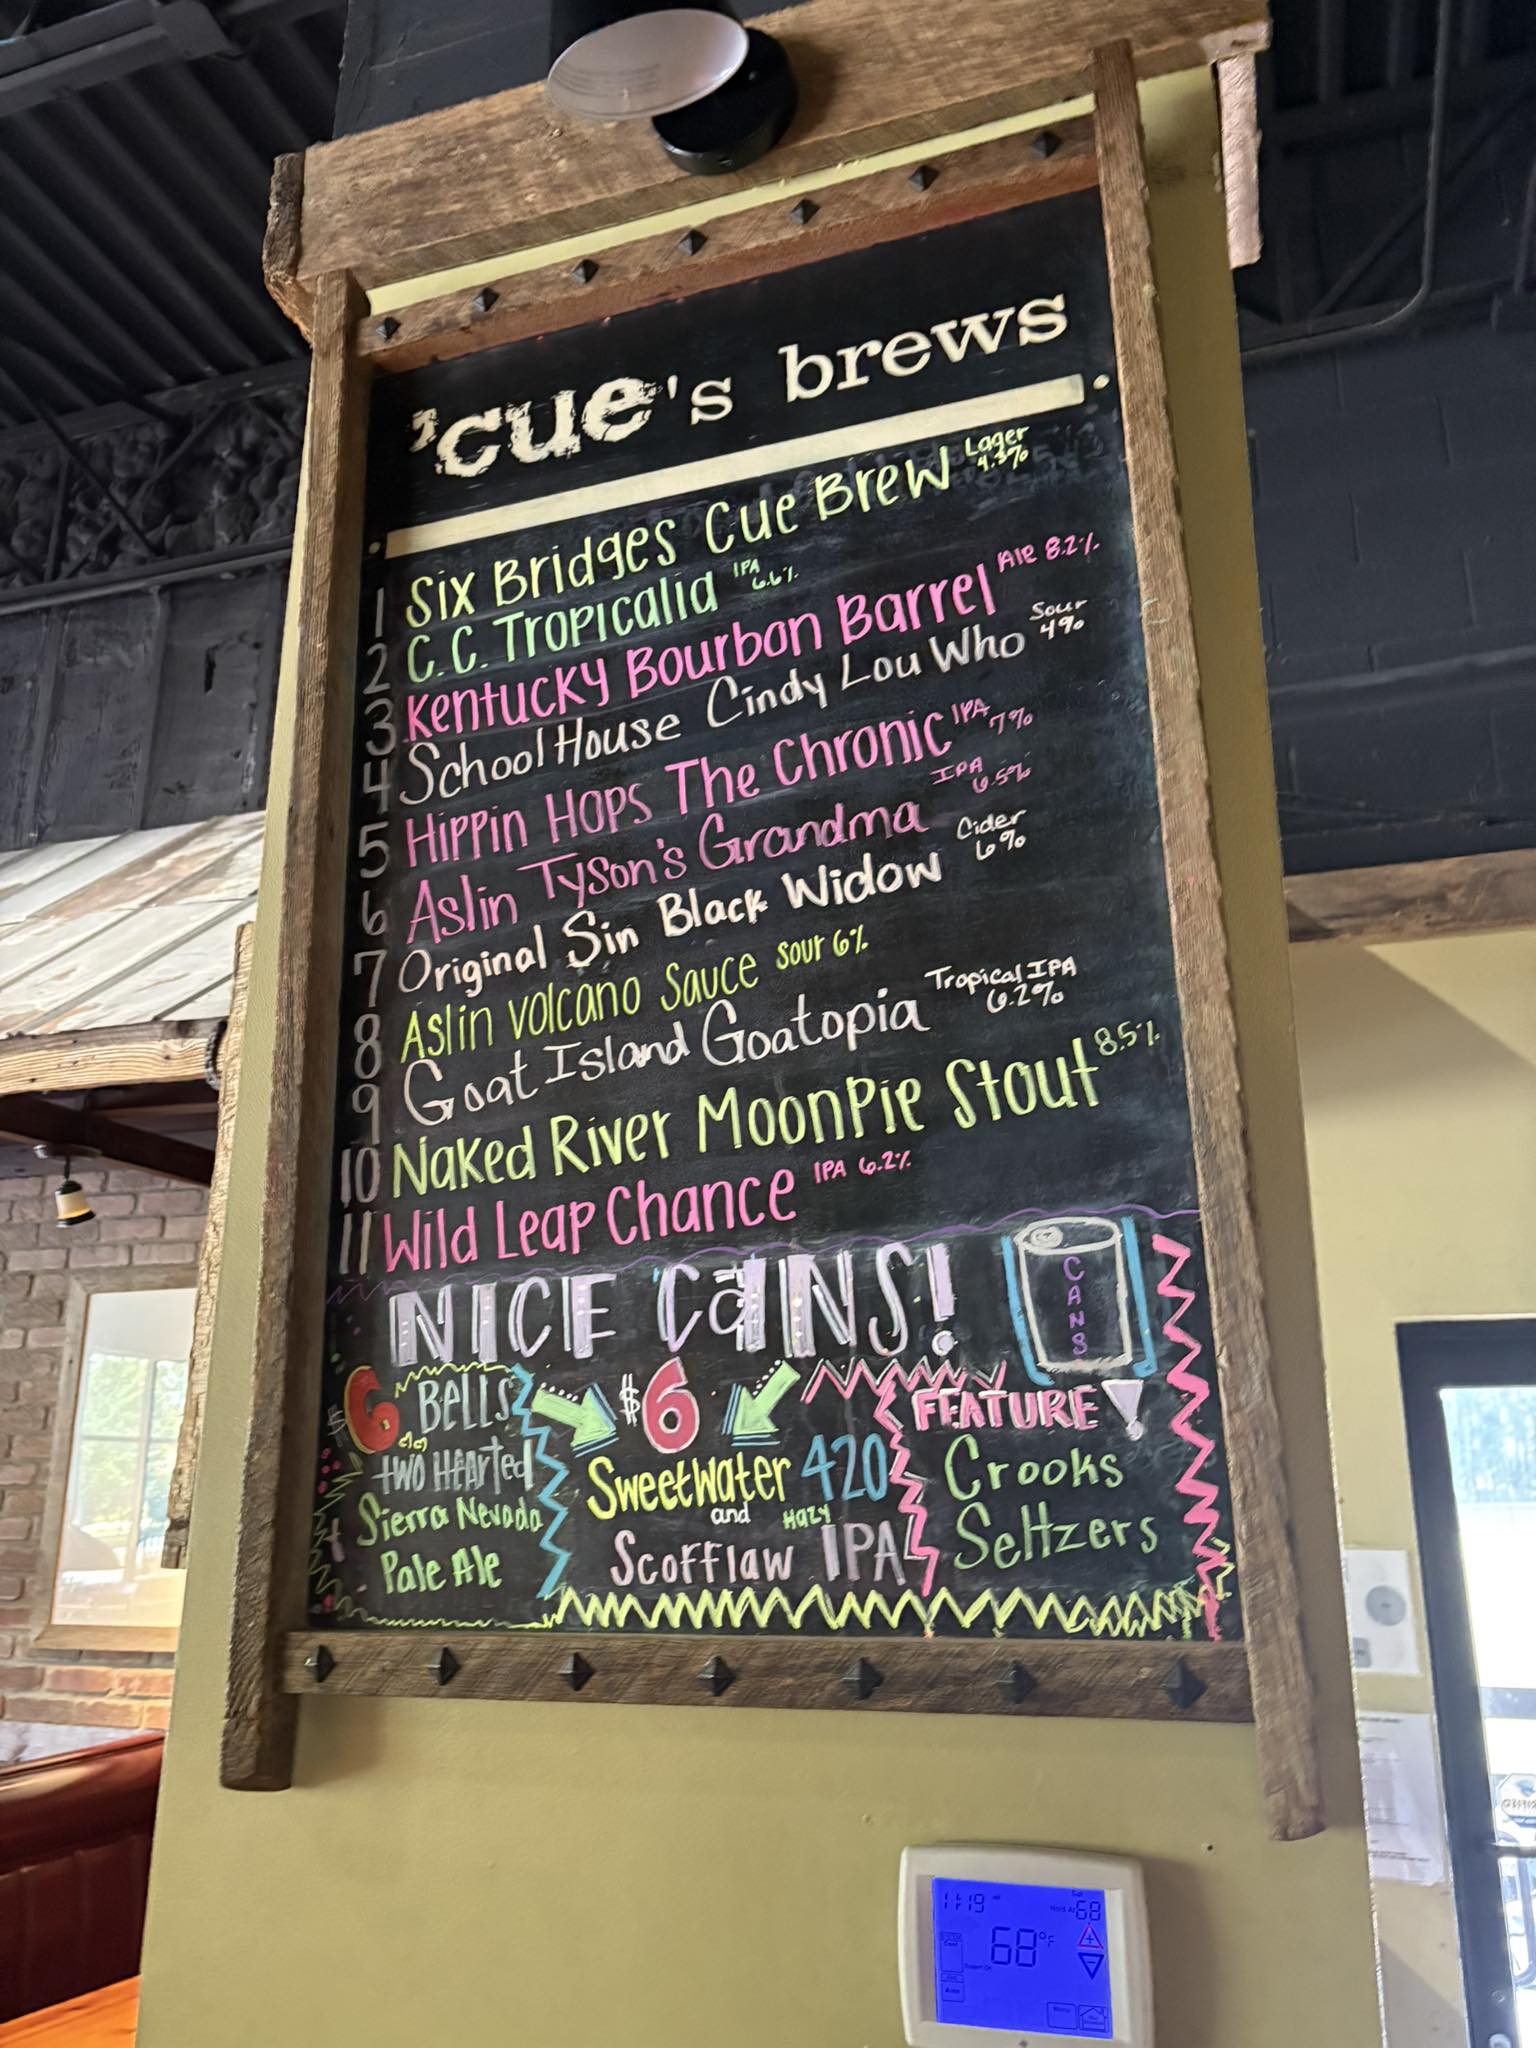 'cue's brews
1 Six Bridges Cue Brew Lager 4.3%
2 C.C. Tropicalia IPA 6.6%
3 Kentucky Bourbon Barrel Ale 8.2%
4 SchoolHouse Cindy Lou Who Sour 4%
5 Hippin Hops The Chronic IPA 7%
6 Aslin Tyson's Grandma IPA 6.5%
7 Original Sin Black Widow Cider 6%
8 Aslin Volcano Sauce Sour 6%
9 Goat Island Goatopia Tropical IPA 6.2%
10 Naked River MoonPie Stout 8.5%
11 Wild Leap Chance IPA 6.2%
NICE CANS!
CANS
$6 BELLS
TWO HEARTED
Sierra Nevada
Pale Ale
$6
SweetWater 420
and Hazy
Scofflaw IPA
FEATURE!
Crooks
Seltzers
11:19
Hold At 68
68°F